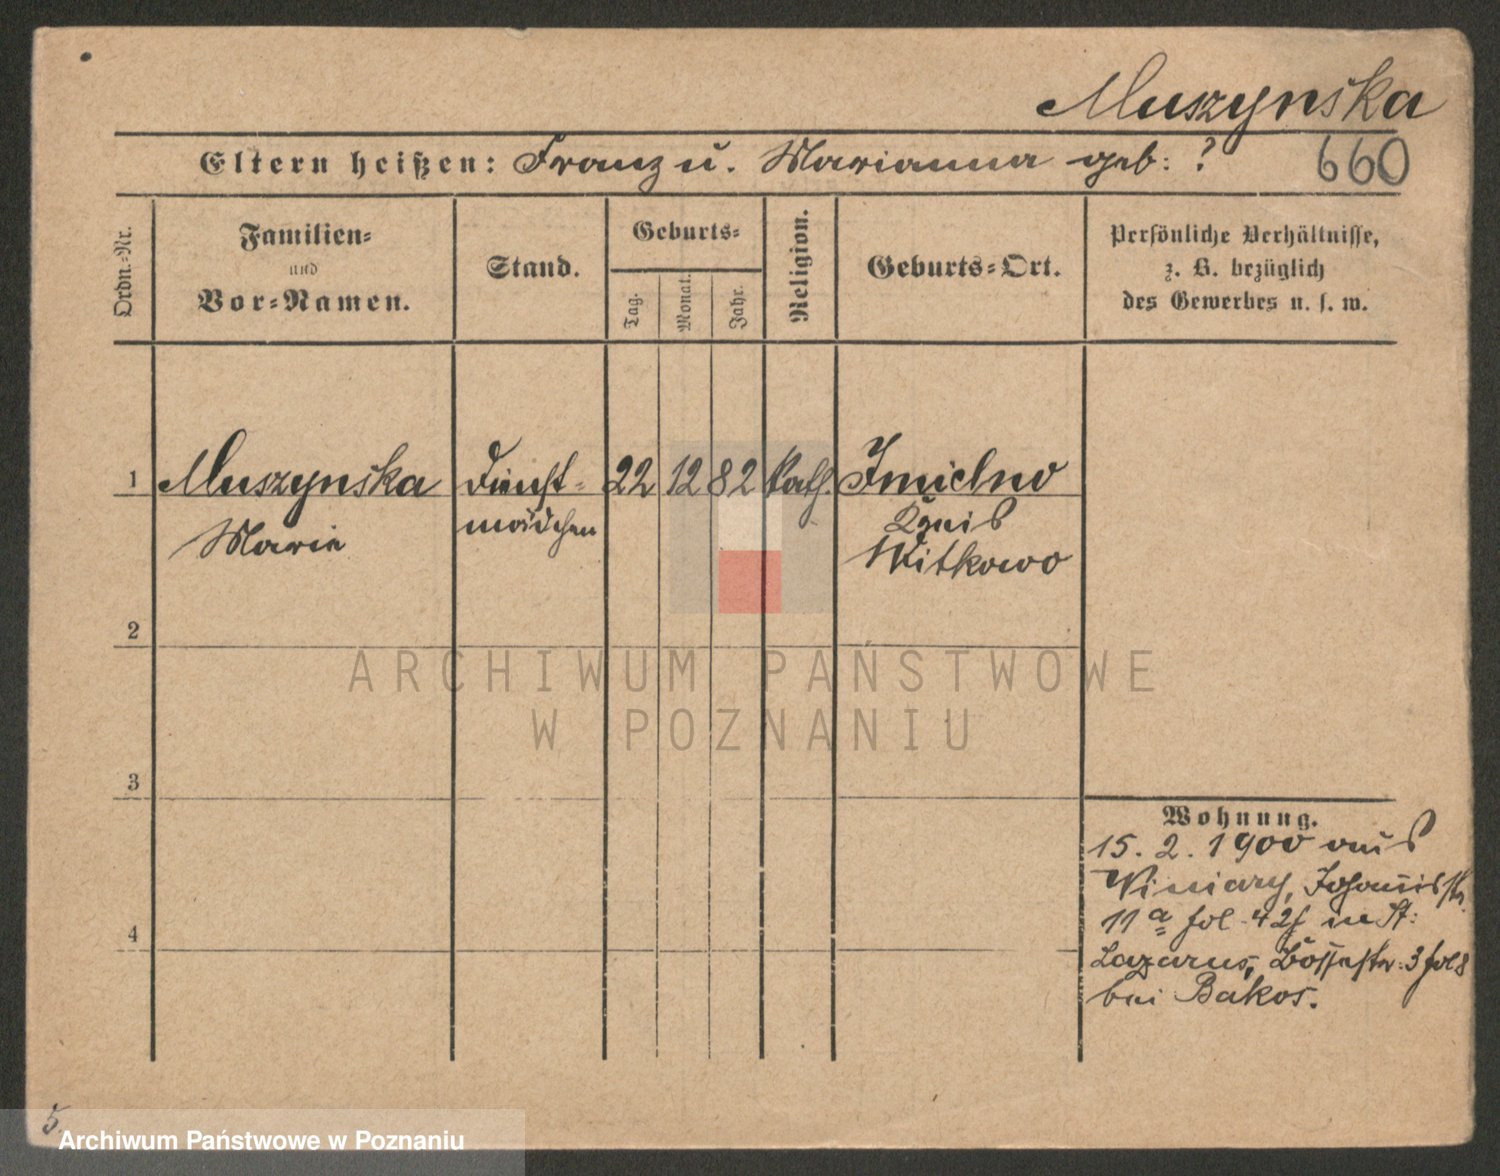 Muszynska
Eltern heißen: Franz u. Marianna geb: ?
660
Ordn.-Nr.
Familien-
und
Vor-Namen.
Stand.
Geburts-
Tag.
Monat.
Jahr.
Religion.
Geburts-Ort.
Persönliche Verhältnisse,
z. B. bezüglich
des Gewerbes u. s. w.
1 Muszynska Dienst- 22 12 82 Kath. Imielno
Marie mädchen Kreis
Witkowo
2
3
4
ARCHIWUM PAŃSTWOWE
W POZNANIU
Wohnung.
15. 2. 1900 aus
Winiary, Johannisstr.
11a fol 42 in St:
Lazarus, 3 fol 8
bei Bakos.
5.
Archiwum Państwowe w Poznaniu